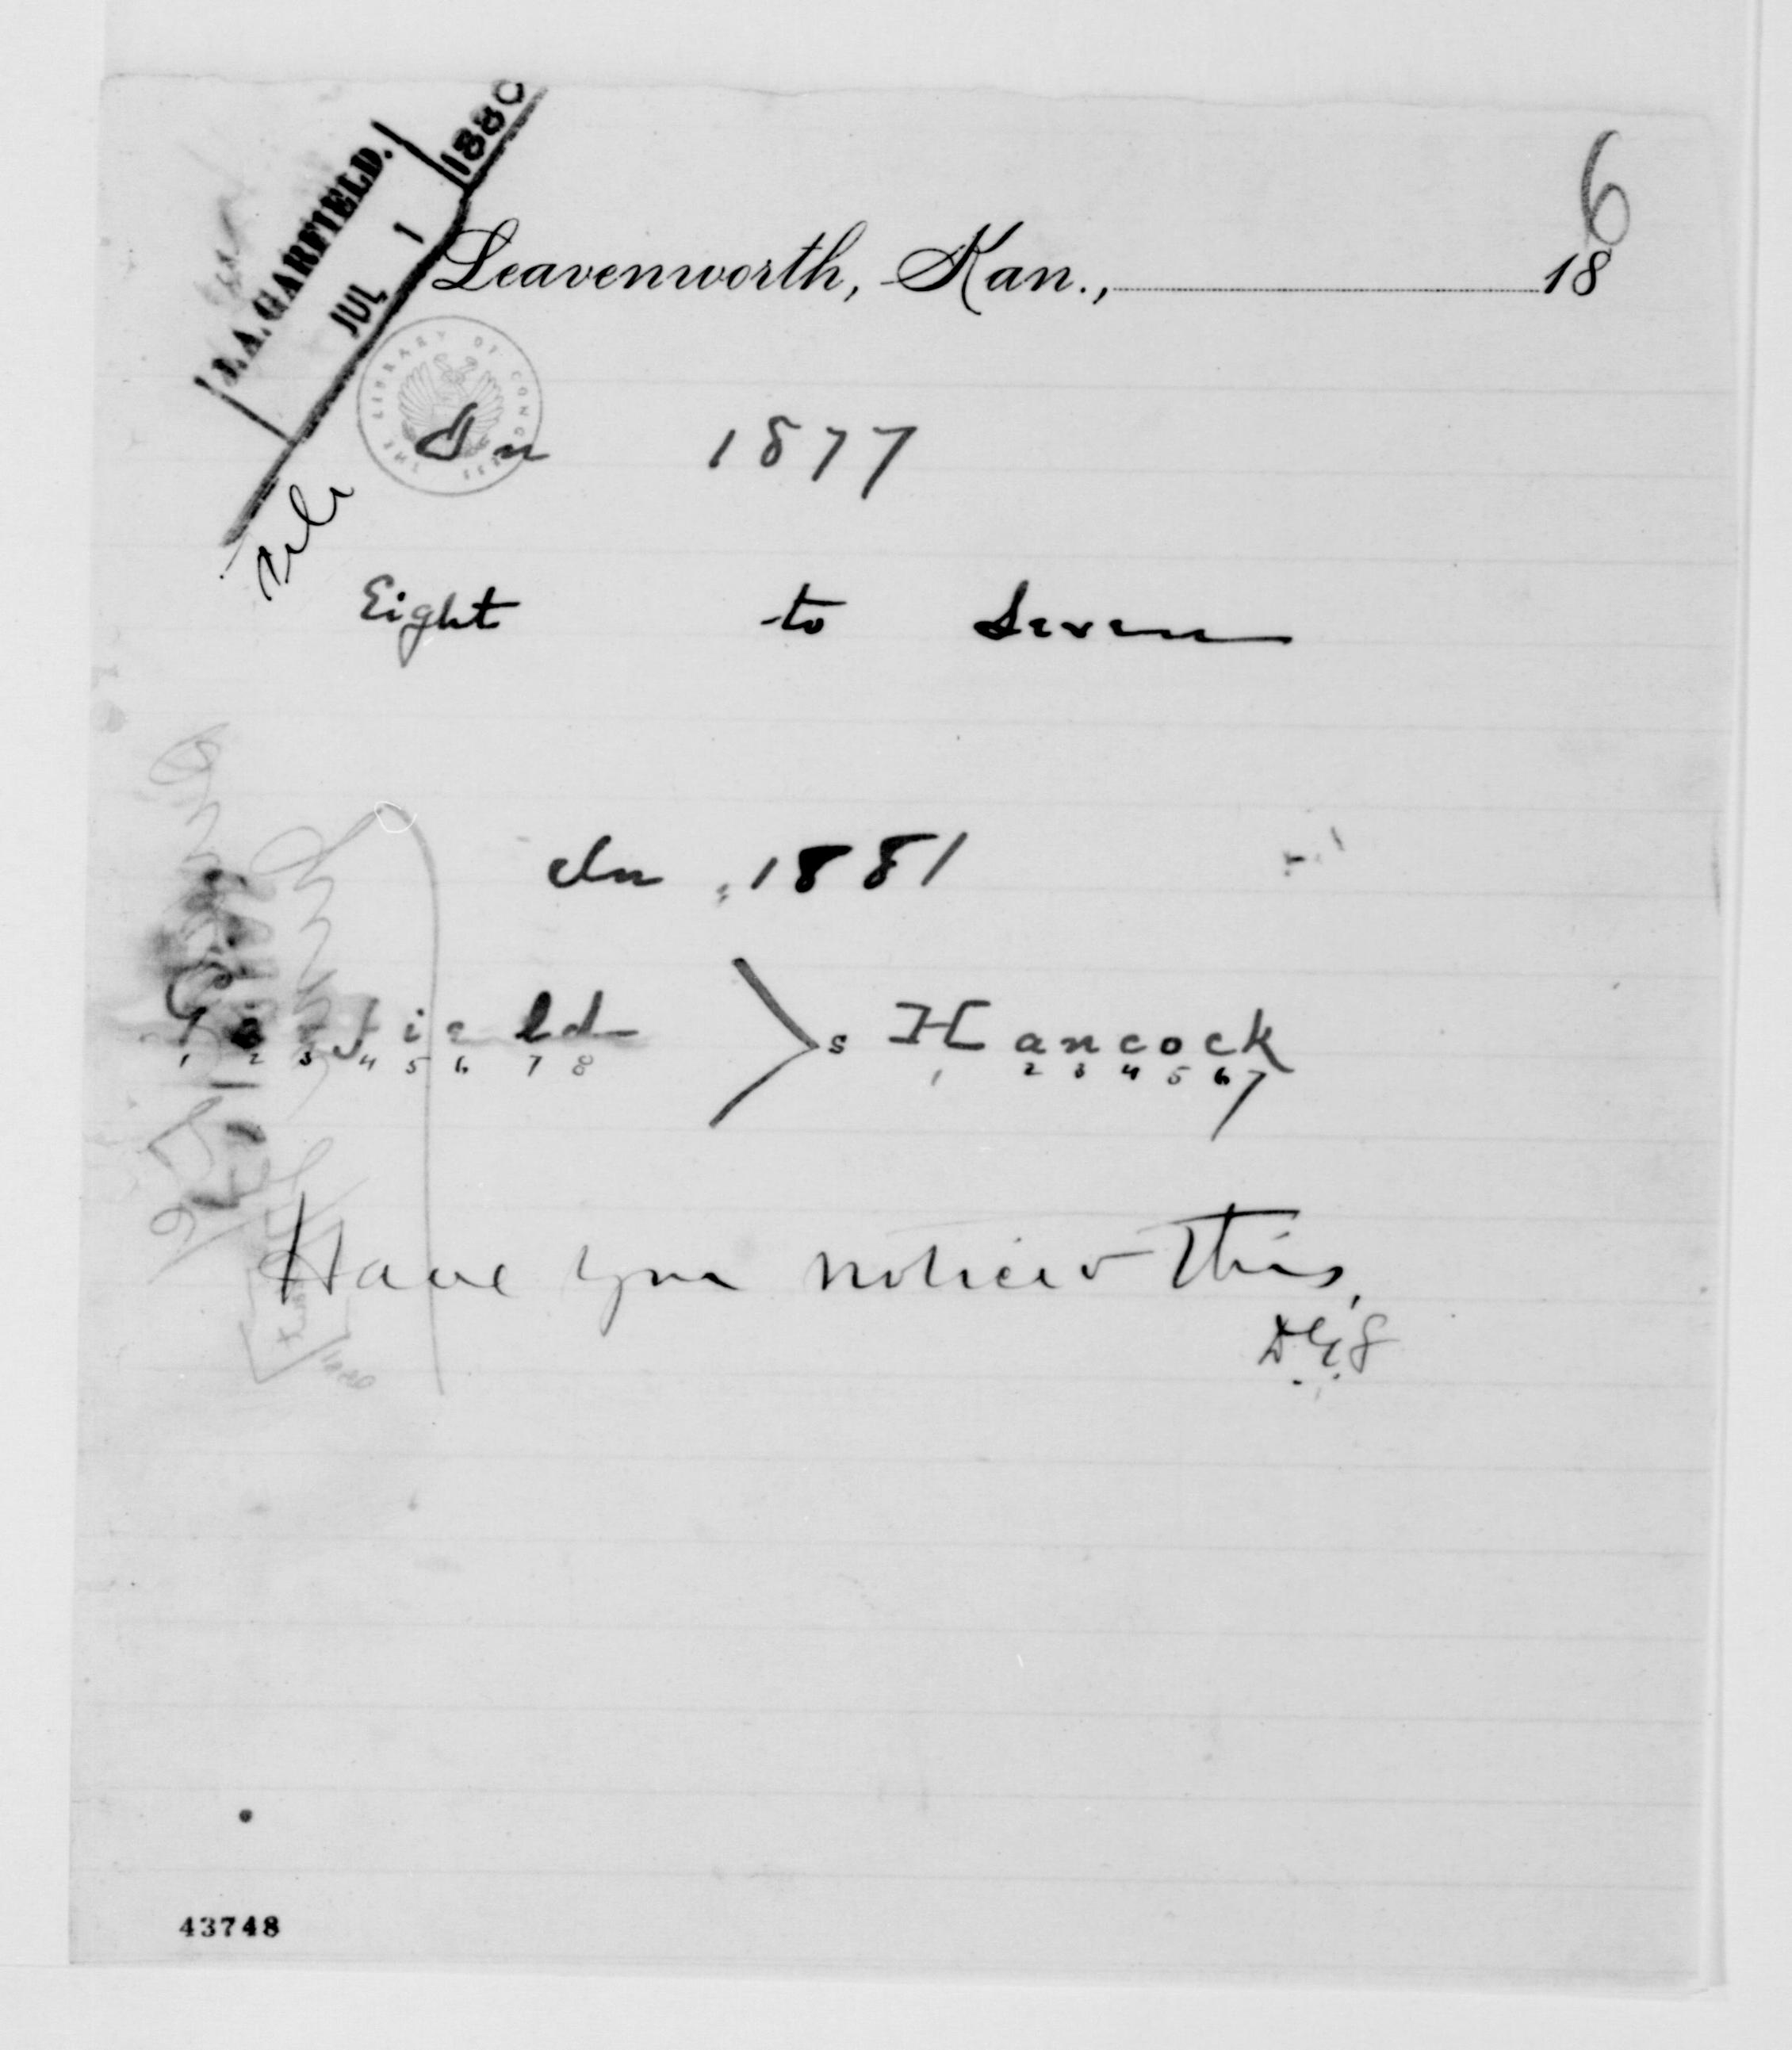 J. A. GARFIELD.
JUL 1 1880
6
Leavenworth, Kan., 18
THE LIBRARY OF CONGRESS
In 1877
Eight to Seven
In 1881
Garfield > s Hancock
1 2 3 4 5 6 7 8 1 2 3 4 5 6 7
Have you noticed this,
43748